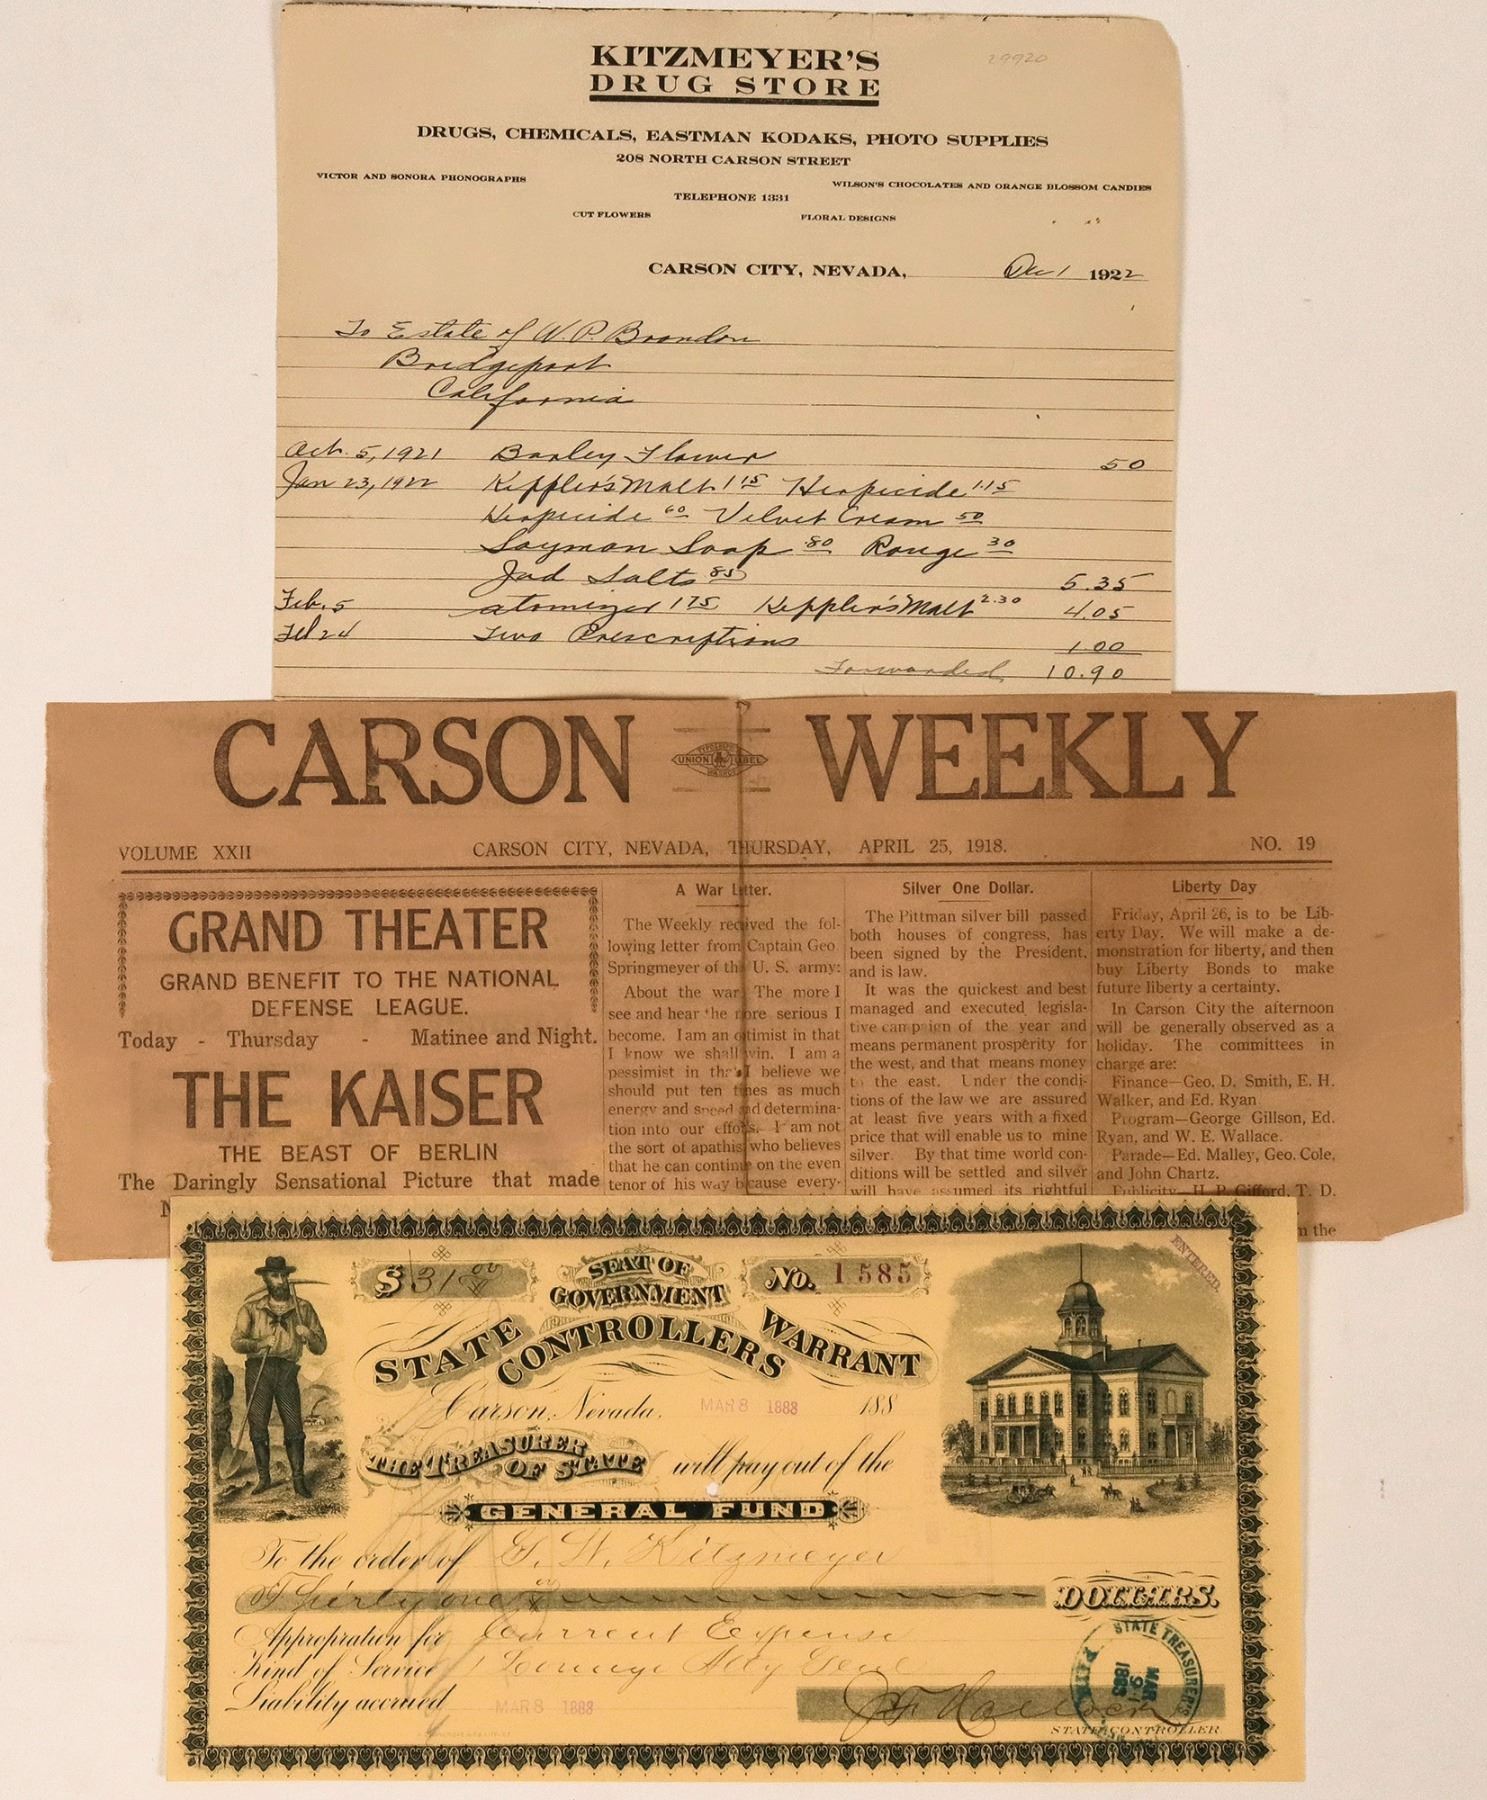 KITZMEYER'S
29920
DRUG STORE
DRUGS, CHEMICALS, EASTMAN KODAKS, PHOTO SUPPLIES
208 NORTH CARSON STREET
VICTOR AND SONORA PHONOGRAPHS
WILSON'S CHOCOLATES AND ORANGE BLOSSOM CANDIES
TELEPHONE 1331
CUT FLOWERS FLORAL DESIGNS
CARSON CITY, NEVADA, Dec 1 1922
To Estate of W. P. Brandon
Bridgeport
California
Oct. 5, 1921 Barley Flower 50
Jan 23, 1922 Keppler's Malt 1 15 Herpicide 1.15
Herpicide 60 Velvet Cream 50
Sayman Soap 80 Rouge 30
Jad Salts 85 5.35
Feb. 5 atomizer 175 Keppler's Malt 2.30 4.05
Feb 24 Two Prescriptions 1.00
Forwarded 10.90
CARSON WEEKLY
UNION LABEL
VOLUME XXII CARSON CITY, NEVADA, THURSDAY, APRIL 25, 1918. NO. 19
GRAND THEATER
GRAND BENEFIT TO THE NATIONAL
DEFENSE LEAGUE.
Today - Thursday - Matinee and Night.
THE KAISER
THE BEAST OF BERLIN
The Daringly Sensational Picture that made
N
A War Letter.
The Weekly received the fol-
lowing letter from Captain Geo
Springmeyer of the U. S. army:
About the war. The more I
see and hear the more serious I
become. I am an optimist in that
I know we shall win. I am a
pessimist in that I believe we
should put ten times as much
energy and speed and determina-
tion into our efforts. I am not
the sort of apathist who believes
that he can continue on the even
tenor of his way because every-
Silver One Dollar.
The Pittman silver bill passed
both houses of congress, has
been signed by the President,
and is law.
It was the quickest and best
managed and executed legisla-
tive campaign of the year and
means permanent prosperity for
the west, and that means money
to the east. Under the condi-
tions of the law we are assured
at least five years with a fixed
price that will enable us to mine
silver. By that time world con-
ditions will be settled and silver
will have assumed its rightful
Liberty Day
Friday, April 26, is to be Lib-
erty Day. We will make a de-
monstration for liberty, and then
buy Liberty Bonds to make
future liberty a certainty.
In Carson City the afternoon
will be generally observed as a
holiday. The committees in
charge are:
Finance—Geo. D. Smith, E. H.
Walker, and Ed. Ryan
Program—George Gillson, Ed.
Ryan, and W. E. Wallace.
Parade—Ed. Malley, Geo. Cole,
and John Chartz.
Publicity—H. P. Gifford, T. D.
n the
ENTERED
$ 31 00 SEAT OF No. 1585
GOVERNMENT
STATE CONTROLLERS WARRANT
Carson, Nevada, MAR 8 1883 188
THE TREASURER OF STATE will pay out of the
GENERAL FUND
To the order of G. W. Kitzmeyer
Thirty one DOLLARS.
Appropriation for Current Expense
Kind of Service Atty Genl
Liability accrued MAR 8 1883
STATE TREASURER'S
PAID
MAR 9 1883
STATE CONTROLLER